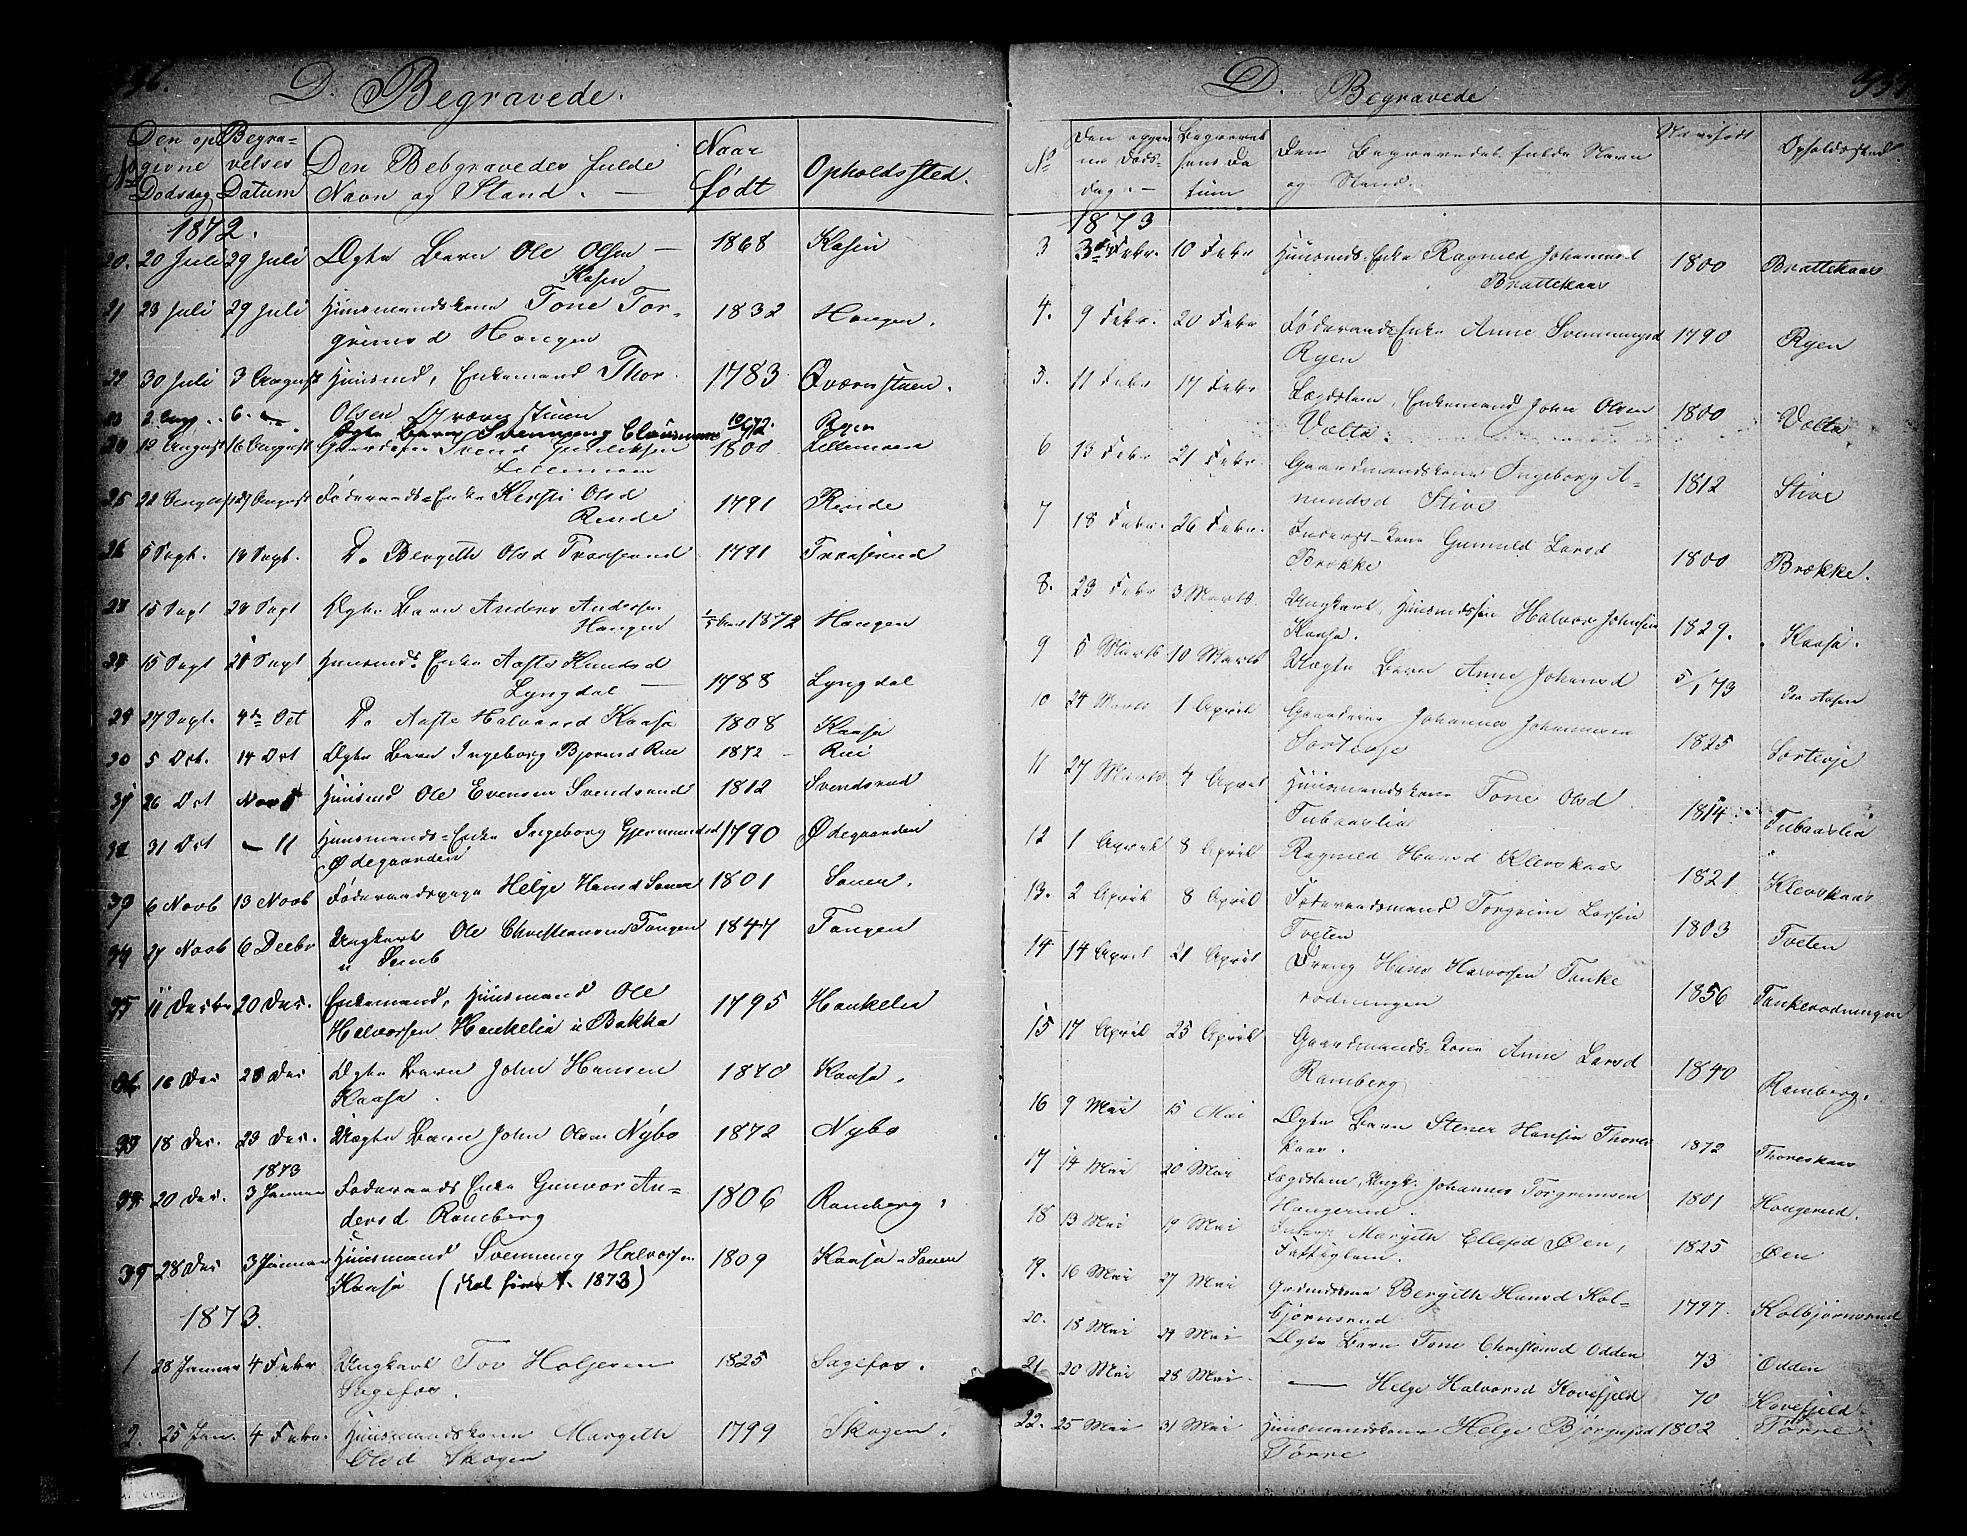 D. Begravede.
No
Den op
givne
Dødsdag
Begra-
velses
Datum
Den Bebgravedes fulde
Navn og Stand. —
Naar
født
Opholdssted.
1872.
20. 20 Juli 29 Juli Ægte Barn Ole Olsen — 1868 Kasin
Kasin
21 23 Juli 29 Juli Huusmandskone Tone Tor- 1832 Haugen.
grimsd Haugen
30 Juli 3 August Huusmd, Enkemand Thor 1783 Qværnstuen.
Olsen Qværnstuen
6. Ægte Barn Svennung Ryen
12 August 16 August Svend 1800 Lillemoen
Lillemoen
25 29 August Føderaads-Enke Kersti Olsd 1791 Rende
Rende
26 5 Sept. 13 Sept. Do Bergith Olsd Traaserud 1791 Traaserud
15 Sept 23 Sept Ægte Barn Anders Andersen 1872 Haugen
Haugen
15 Sept Sept Huusmds Enke Aaste Knudsd 1788 Lyngdal
Lyngdal —
29 27 Sept. 4de Oct Do Aaste Halvorsd Kaasa 1808 Kaasa
30 5 Oct. 14 Oct Ægte Barn Ingeborg Bjørnsd Rui 1872 Rui
31 26 Oct Nov Huusmd Ole Evensen Svendsrud 1812 Svendsrud
32 31 Oct — 11 Huusmands-Enke Ingeborg Gjermundsd 1790 Ødegaarden
Ødegaarden
33 6 Novb 13 Novb Helge Hansd Sauer 1801 Sauer.
34 27 Novb 6 Decbr Ungkarl Ole Christiansen Tangen 1847 Tangen
35 11 Decbr 20 Dec. Enkemand, Huusmand Ole 1795 Haukelia
Halvorsen Haukelia u Bakka
36 16 Dec Dec Ægte Barn John Hansen 1870 Kaasa.
Kaasa.
18 Dec. 23 Dec. Uægte Barn John Olsen Nybo 1872 Nybo
1873
20 Dec. 3 Januar Føderaads Enke Gunvor An- 1806 Ramberg.
dersd Ramberg
39 28 Dec 3 Januar Huusmand Svennung Halvorsen 1809 Kaasa u Sauer
Kaasa (skal 1873)
1873.
1 28 Januar 4 Febr Ungkarl Tov Holjesen 1825 Sagefos.
Sagefos.
2. 25 Jan. 4 Febr. Huusmandskone Margith 1799 Skogen.
Olsd Skogen
D. Begravede
No
Den opgiv
ne Døds-
dag. —
Begravel
sens Da
tum
Den Begravedes fulde Navn
og Stand.
Naar født
Opholdssted.
1873
3 3die Febr. 10 Febr Huusmds-Enke Ragnild Johannesd 1800 Brattekaas
Brattekaas
4. 9 Febr. 20 Febr Føderaads Enke Anne Svennungsd 1790 Ryen
Ryen
5. 11 Febr 17 Febr Lægdslem, Enkemand John Olsen 1800 Vælta
Vælta
6 13 Febr 21 Febr. Gaardmandskone Ingeborg A- 1812 Stive
mundsd Stive
7 18 Febr. 26 Febr. Inderst-kone Gunnild Larsd 1800 Brække.
Brække
8. 23 Febr 3 Marts. Ungkarl, Huusmdssøn Halvor Johnsen 1829. Kaasa.
Kaasa.
9 5 Marts 10 Marts Uægte Barn Anne Johansd 5/1 73
10 24 Marts 1 April Gaardeier Johannes Johannesen 1825 Sorteøje
Sorteøje
11 27 Marts 4 April Huusmandskone Tone Olsd 1814 Tubaaslia
Tubaaslia
12 1 April 8 April Ragnild Hansd Klevskaas 1821 Klevskaas
13. 2 April 8 April Føderaadsmand Torgrim Larsen 1803 Tveten
Tveten
14 14 April 21 April Dreng Hans Halvorsen Tanke 1856 Tankerodningen
rodningen
15 17 April 25 April Gaardmands-kone Anne Larsd 1840 Ramberg.
Ramberg
16 9 Mai 15 Mai Ægte Barn Stener Hansen Thores 1872 Thoreskaas
kaas.
17 14 Mai 20 Mai Lægdslem, Ungk. Johannes Torgrimsen 1801 Haugerud.
Haugerud.
18 13 Mai 19 Mai Margith Ellefsd Øen, 1825 Øen
Fattiglem.
19. 16 Mai 27 Mai Bergith Hansd Kol- 1797. Kolbjørnsrud
bjørnsrud
20. 18 Mai 24 Mai Ægte Barn Tone Christiansd Odden 73 Odden
21 20 Mai 28 Mai. — Helge Halvorsd Kovefjeld 70 Kovefjeld
22. 25 Mai 31 Mai Huusmandskone Helge Bjørnsd 1802 Tørre
Tørre